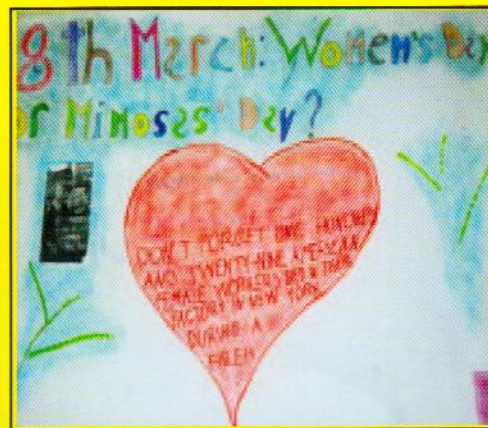 8th March: Women's Day
or Mimosas' Day?
DON'T FORGET ONE HUNDRED
AND TWENTY-NINE AMERICAN
FEMALE WORKERS IN THEIR
FACTORY IN NEW YORK
DURING A